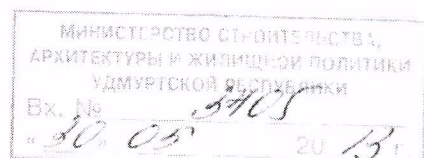 МИНИСТЕРСТВО СТРОИТЕЛЬСТВА,
АРХИТЕКТУРЫ И ЖИЛИЩНОЙ ПОЛИТИКИ
УДМУРТСКОЙ РЕСПУБЛИКИ
Вх. №
"30" 05 2013 г.